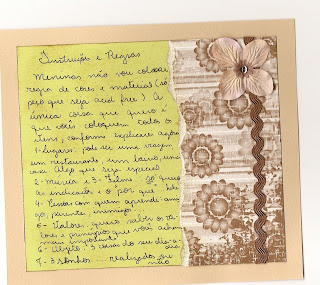 Instruções e Regras
Meninas não vou colocar
regra de cores e material (só
peço que seja acid free). A
única coisa que quero é
que vocês coloquem todos os
itens, conforme explicarei agora
1- Lugares: pode ser uma viagem,
um restaurante, um bairro, uma
casa. Algo que seja especial
2- Música e 3- Filme. Só quero
as indicações e o "por que".
4- Pessoa com quem aprende: ami
go, parente, inimigo.
5- Valores: quero saber os va-
lores e princípios que vocês acham
mais importante
6- Objeto: 3 coisas do seu dia-a-dia
7- 3 sonhos: realizados ou
não